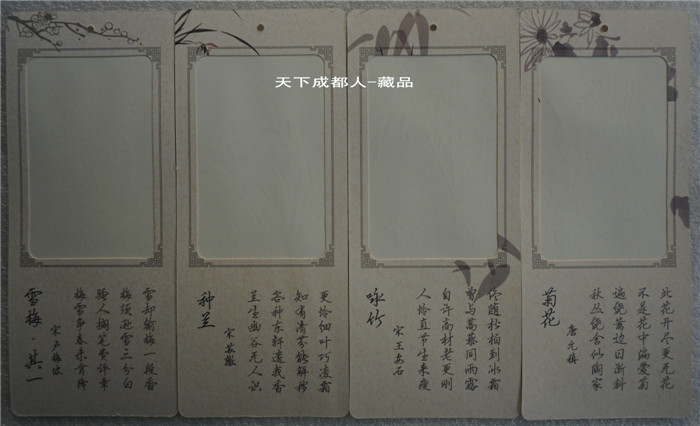 天下成都人-藏品
雪梅·其一
宋 卢梅坡
梅雪争春未肯降
骚人搁笔费评章
梅须逊雪三分白
雪却输梅一段香
种兰
宋 苏辙
兰生幽谷无人识
客种东轩遗我香
知有清芬能解秽
更怜细叶巧凌霜
咏竹
宋 王安石
人怜直节生来瘦
自许高材老更刚
曾与蒿藜同雨露
终随松柏到冰霜
菊花
唐 元稹
秋丛绕舍似陶家
遍绕篱边日渐斜
不是花中偏爱菊
此花开尽更无花